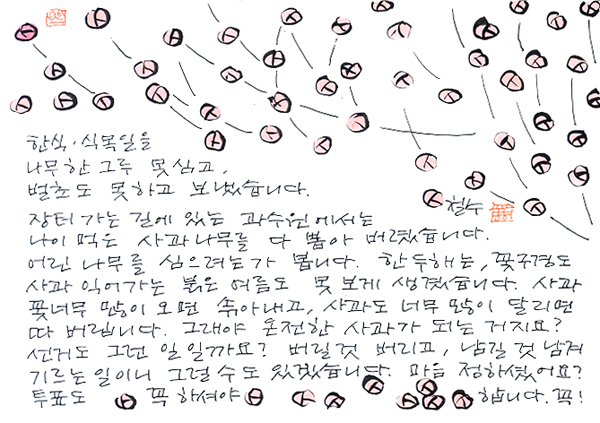 한식·식목일을
나무 한 그루 못 심고,
벌초도 못하고 보냈습니다.
철수
장터 가는 길에 있는 과수원에서는
나이 먹은 사과나무를 다 뽑아 버렸습니다.
어린 나무를 심으려는가 봅니다. 한두해는, 꽃구경도
사과 익어가는 붉은 여름도 못 보게 생겼습니다. 사과
꽃너무 많이 오면 솎아내고, 사과도 너무 많이 달리면
따 버립니다. 그래야 온전한 사과가 되는 거지요?
선거도 그런 일일까요? 버릴 것 버리고, 남길 것 남겨
기르는 일이니 그럴 수도 있겠습니다. 마음 정하셨어요?
투표도 꼭 하셔야 합니다. 꼭!